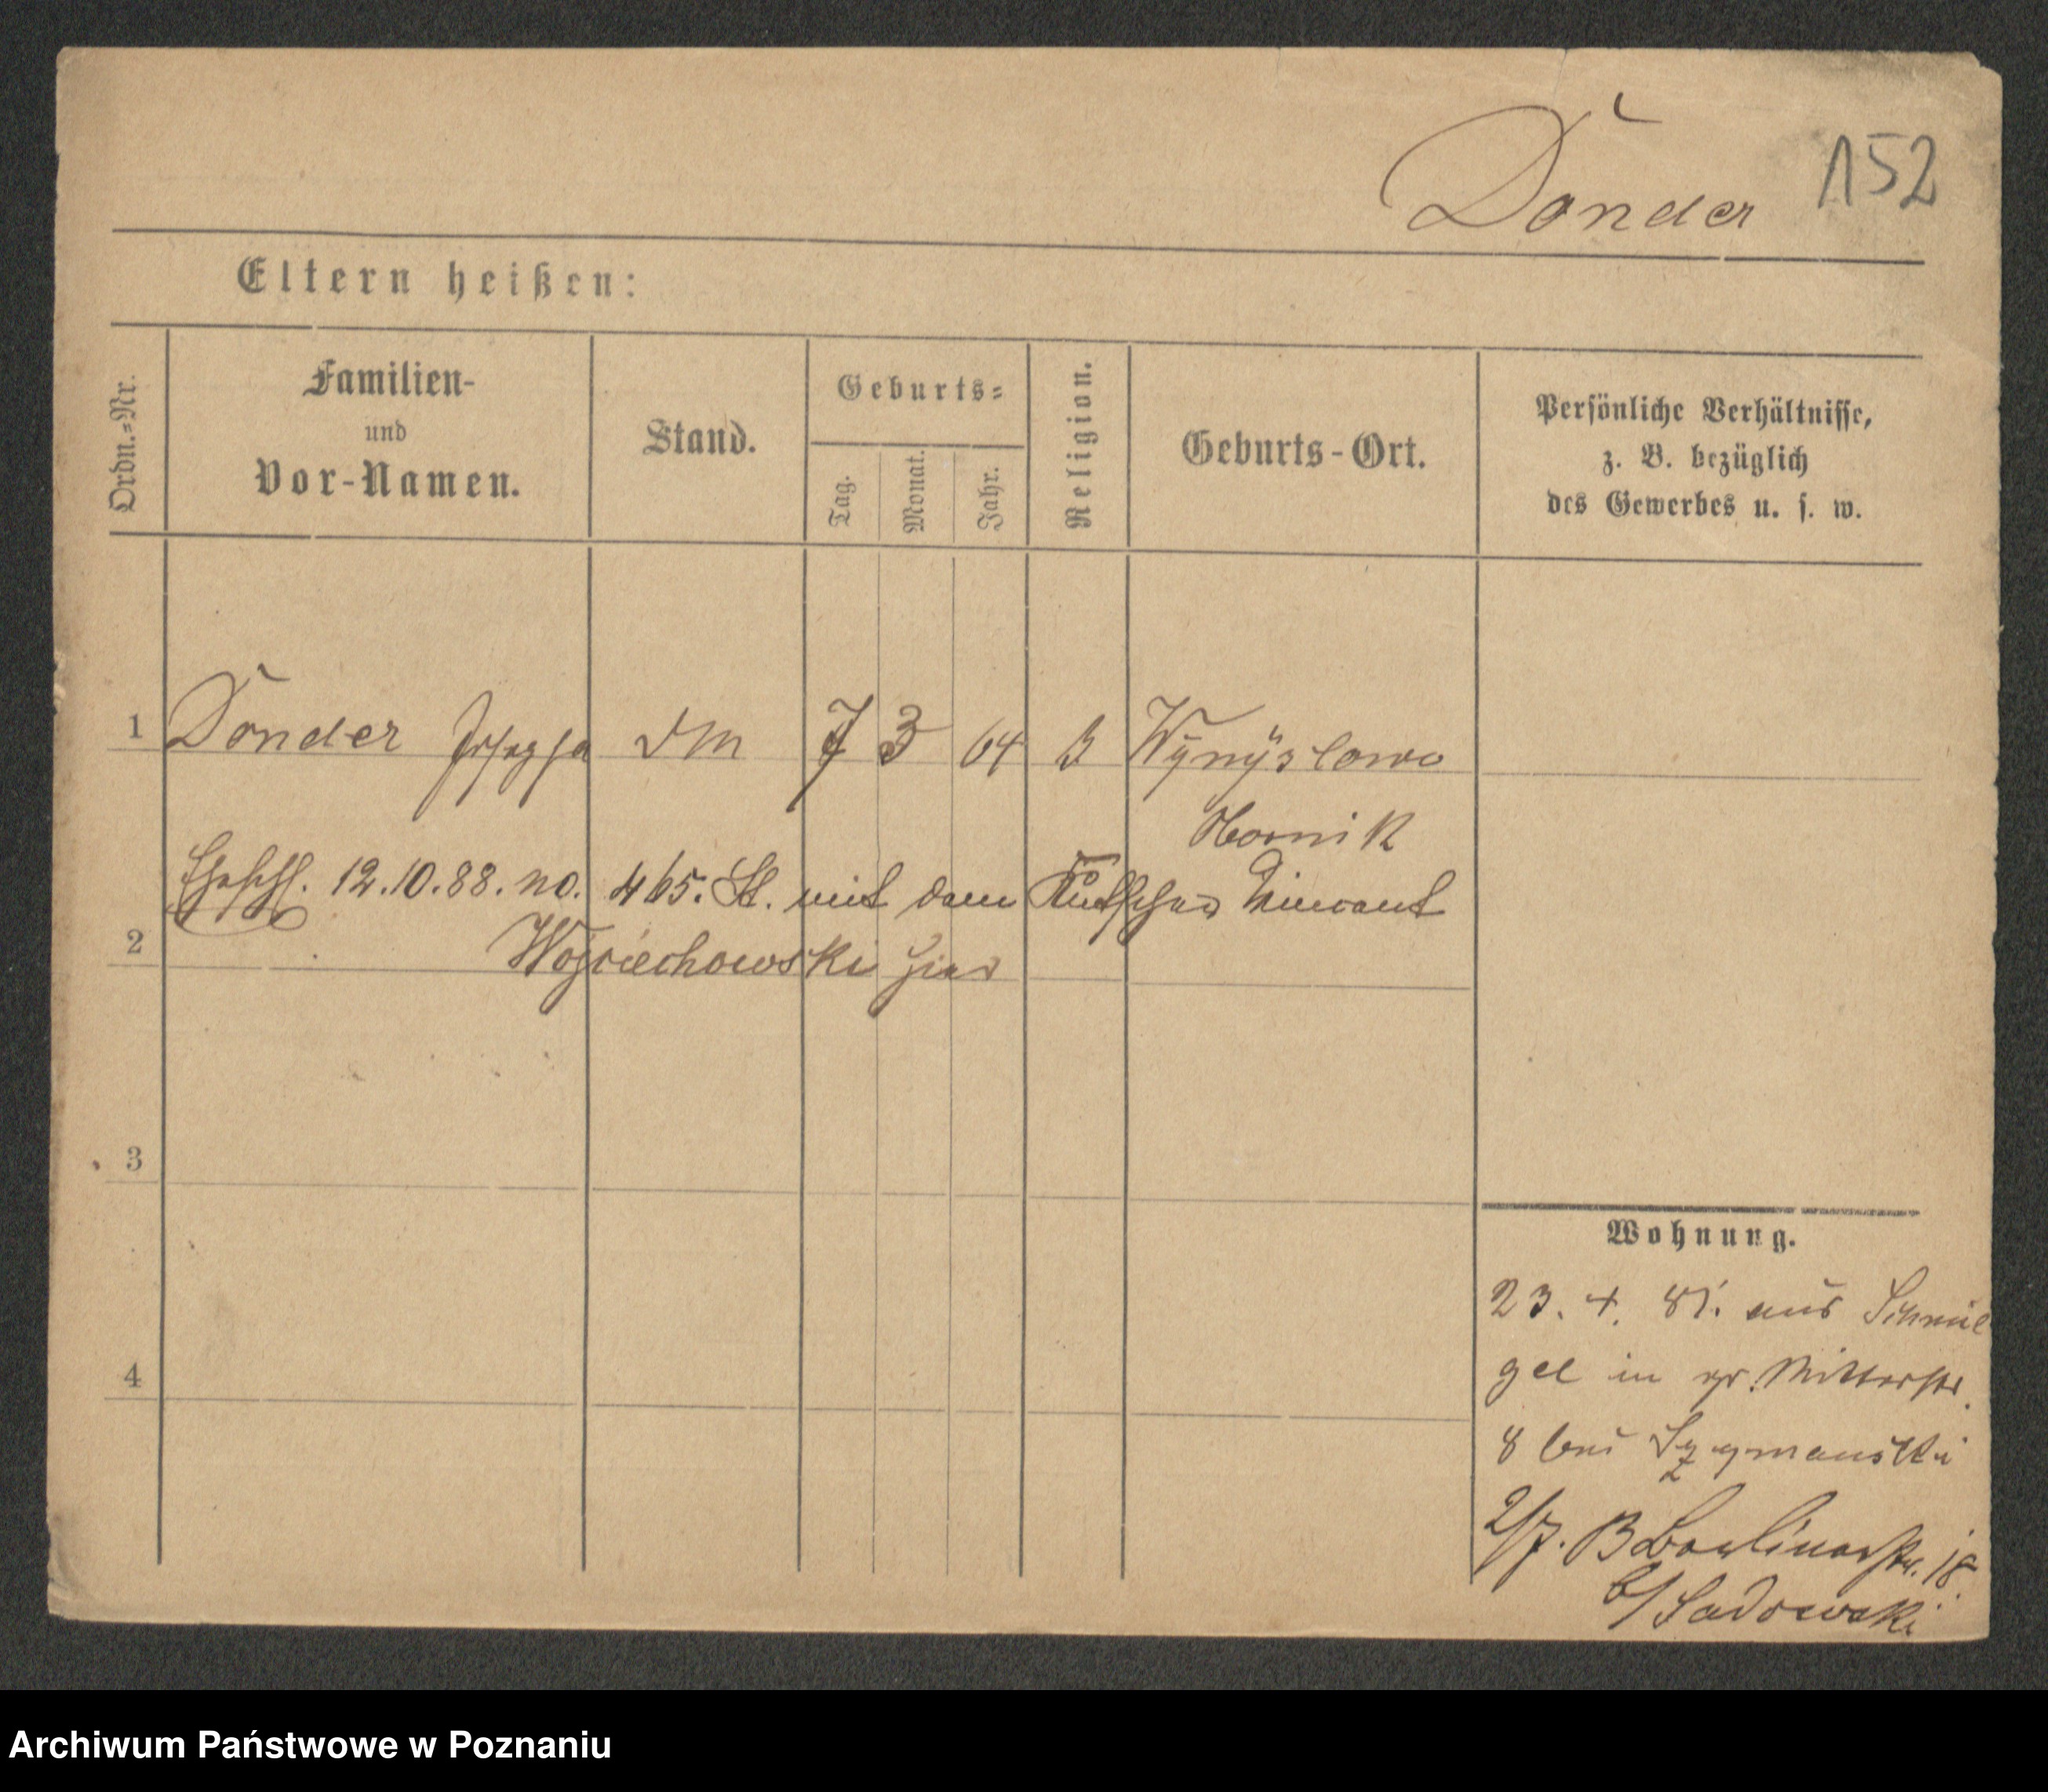 Donder 152
Eltern heißen:
Ordn.-Nr.
Familien-
und
Vor-Namen.
Stand.
Geburts-
Tag.
Monat.
Jahr.
Religion.
Geburts-Ort.
Persönliche Verhältnisse,
z. B. bezüglich
des Gewerbes u. s. w.
1 Donder Josepha DM 7 3 64
Obornik
12.10.88. no. 465. St. mit dem Kutscher Vincent
2 Wojciechowski hier
3
4
Wohnung.
23. 4. aus Schmie
gel in gr. Ritterstr.
8 bei Szymanski
2/7. B Berlinerstr. 18.
b/ Sadowski
Archiwum Państwowe w Poznaniu